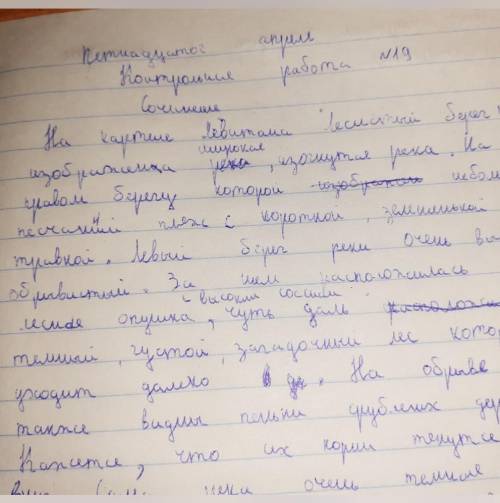 Пятнадцатое апреля
Контрольная работа №19
Сочинение
На картине Левитана "Лесистый берег"
изображена широкая, изогнутая река. На
правом берегу которой небол
песчаный пляж с короткой, зелененькой
травкой. Левый берег реки очень вы
обрывистый. За ним расположилась
лесная опушка, с высокими соснами чуть даль
темный, густой, загадочный лес кото
уходит далеко. На обрыве
также видны пеньки срубленых дер
Кажется, что их корни тянутся
реки очень темная